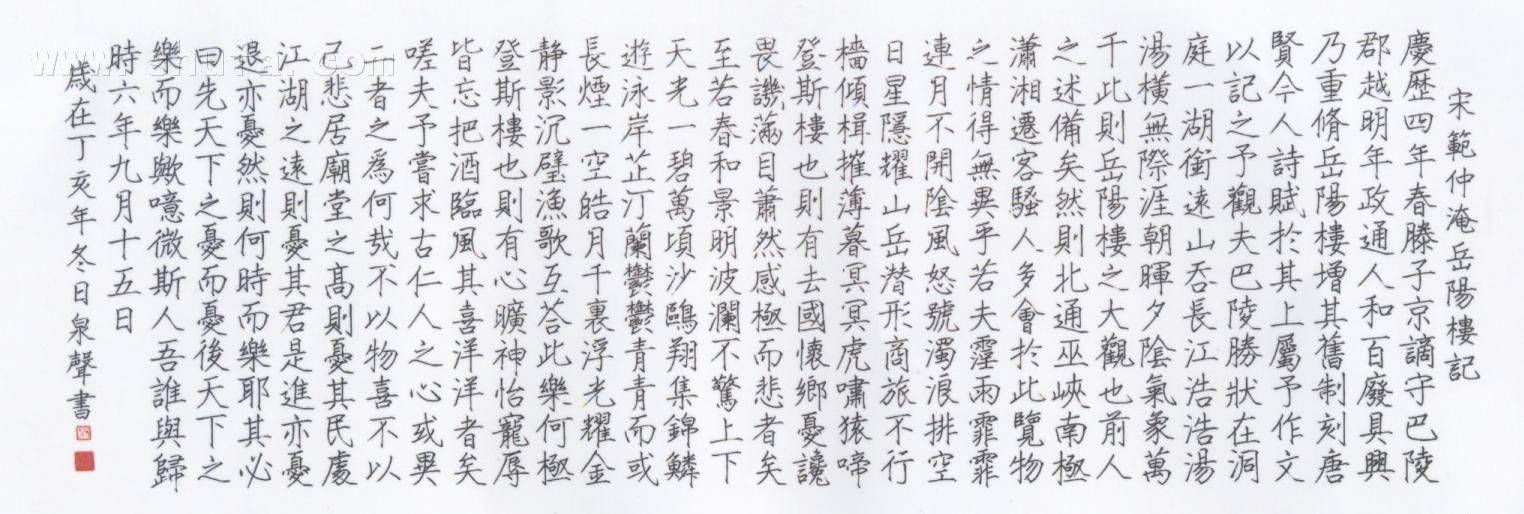 宋範仲淹岳陽樓記
慶歷四年春滕子京謫守巴陵
郡越明年政通人和百廢具興
乃重脩岳陽樓增其舊制刻唐
賢今人詩賦於其上屬予作文
以記之予觀夫巴陵勝狀在洞
庭一湖銜遠山吞長江浩浩湯
湯橫無際涯朝暉夕陰氣象萬
千此則岳陽樓之大觀也前人
之述備矣然則北通巫峽南極
瀟湘遷客騷人多會於此覽物
之情得無異乎若夫霪雨霏霏
連月不開陰風怒號濁浪排空
日星隱耀山岳潛形商旅不行
檣傾楫摧薄暮冥冥虎嘯猿啼
登斯樓也則有去國懷鄉憂讒
畏譏滿目蕭然感極而悲者矣
至若春和景明波瀾不驚上下
天光一碧萬頃沙鷗翔集錦鱗
遊泳岸芷汀蘭鬱鬱青青而或
長煙一空皓月千裏浮光耀金
靜影沉璧漁歌互荅此樂何極
登斯樓也則有心曠神怡寵辱
皆忘把酒臨風其喜洋洋者矣
嗟夫予嘗求古仁人之心或異
二者之爲何哉不以物喜不以
己悲居廟堂之高則憂其民處
江湖之遠則憂其君是進亦憂
退亦憂然則何時而樂耶其必
曰先天下之憂而憂後天下之
樂而樂歟噫微斯人吾誰與歸
時六年九月十五日
歲在丁亥年冬日泉聲書